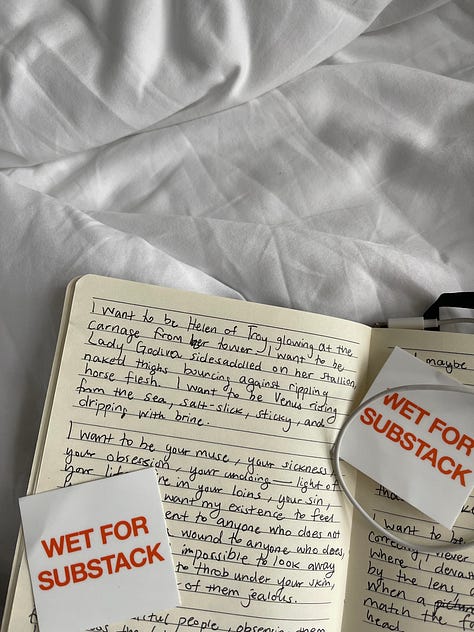 I want to be Helen of Troy glowing at the
carnage from her tower, I want to be
Lady Godiva sidesaddled on her stallion,
naked thighs bouncing against rippling
horse flesh. I want to be Venus riding
from the sea, salt-slick, sticky, and
dripping with brine.
I want to be your muse, your sickness,
your obsession, your undoing — light of
your life, fire in your loins, your sin,
want my existence to feel
to anyone who does not
wound to anyone who does,
impossible to look away
to throb under your skin,
of them jealous.
people, observe them
WET FOR
SUBSTACK
maybe
WET FOR
SUBSTACK
I want to be
where I
by the lens
when a
match the
head.